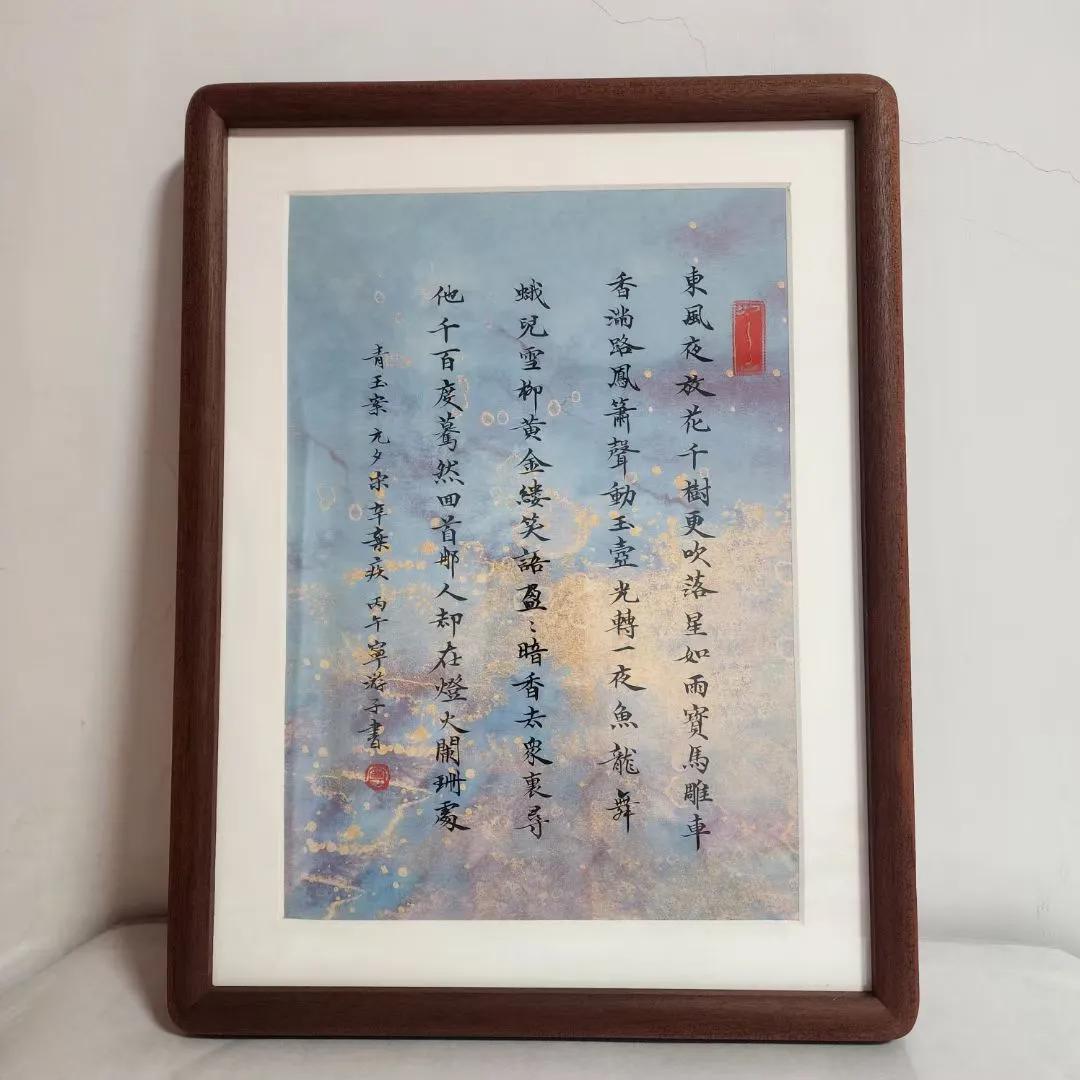 東風夜放花千樹更吹落星如雨寶馬雕車
香滿路鳳簫聲動玉壺光轉一夜魚龍舞
蛾兒雪柳黄金縷笑語盈〻暗香去衆裏尋
他千百度驀然回首那人却在燈火闌珊處
青玉案元夕宋辛棄疾丙午寧游子書